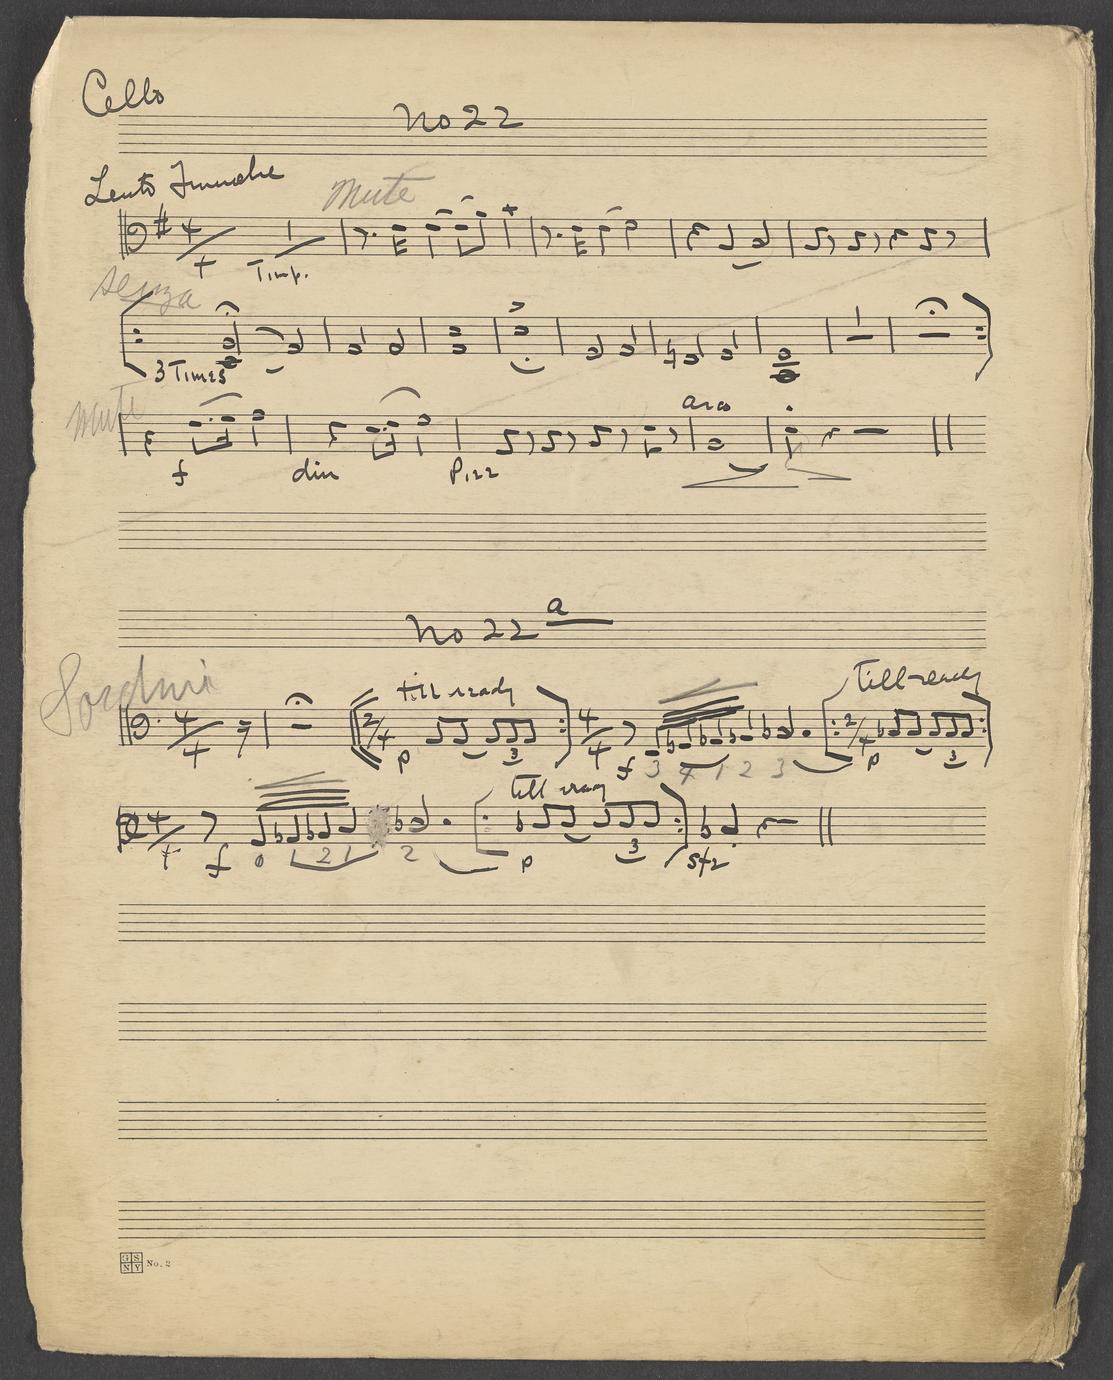 Cello
No 22
Lento Funebre
Mute
4
4 Timp.
Senza
3 Times
Mute
arco
f din Pizz
No 22 a
Sordini
till ready till ready
4 2 4 2
4 4 p 3 4 f 3 4 1 2 3 4 p 3
till ready
4
4 f 0 1 2 1 2 p 3 sfz
GSNY No. 2